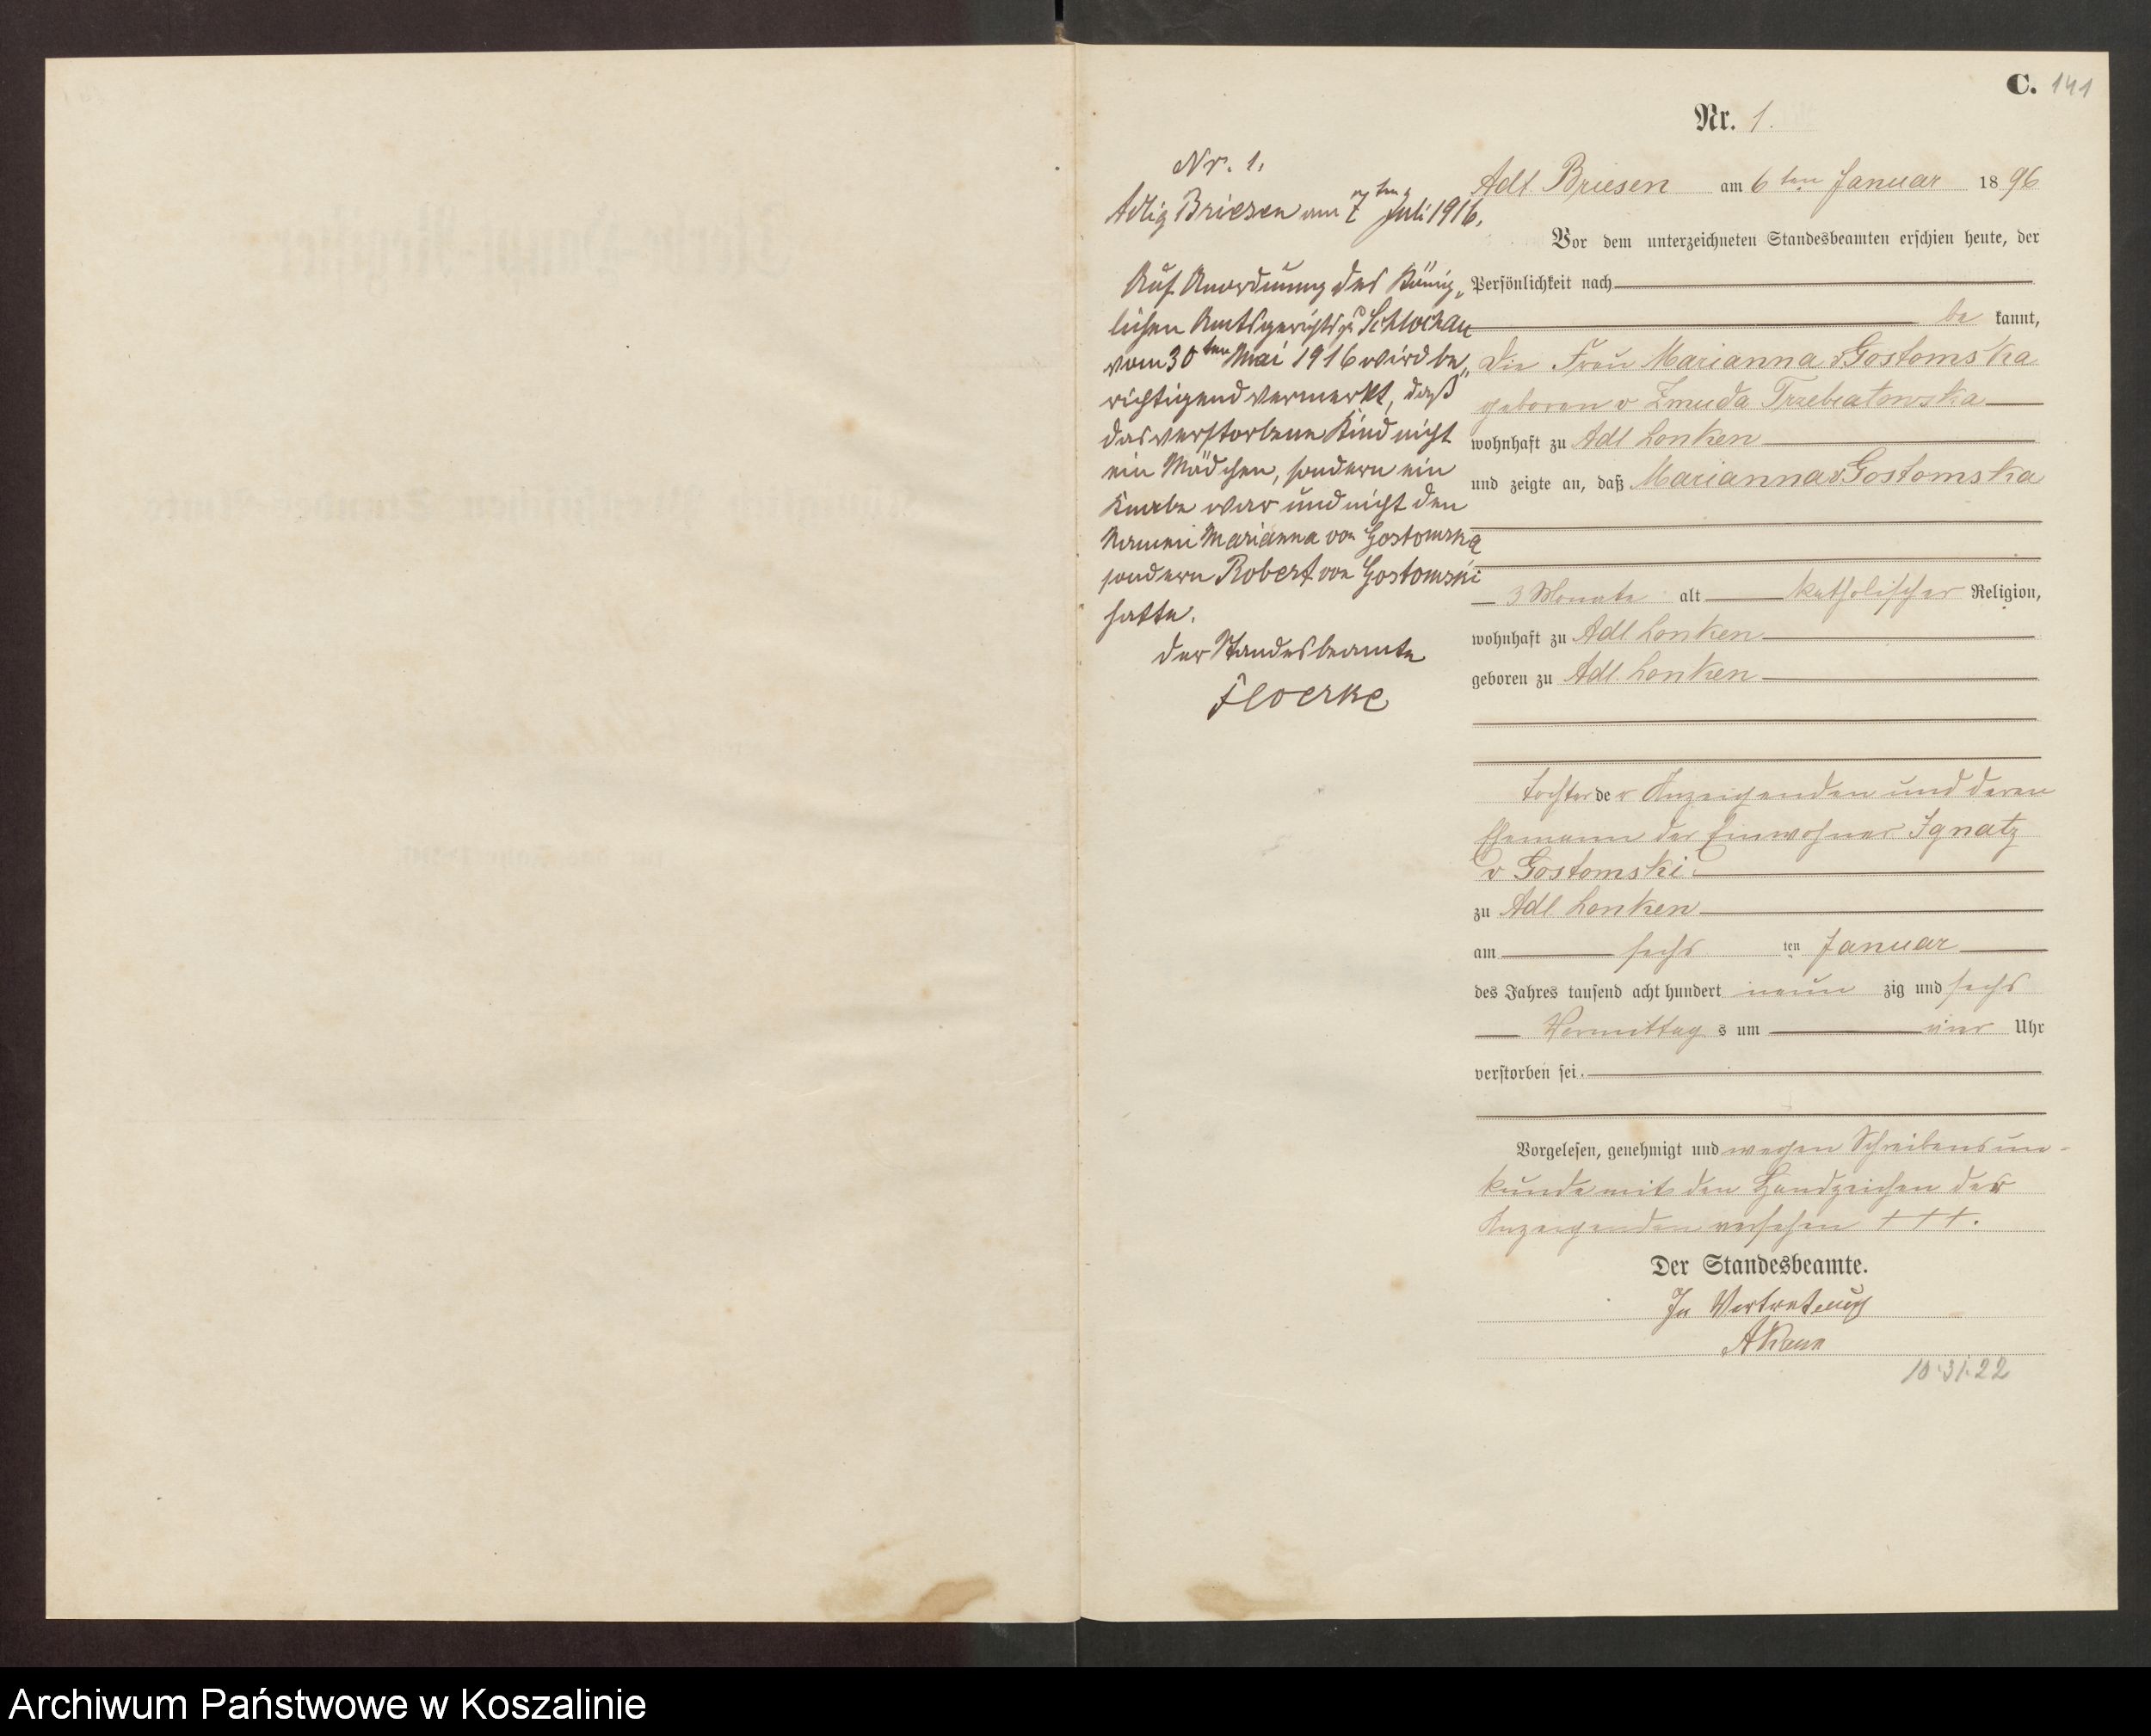 C. 141
Nr. 1.
Nr. 1.
Adlig Briesen am 7ten Juli 1916.
Auf Anordnung des König„
lichen Amtsgerichts zu Schlochau
vom 30ten Mai 1916 wird be„
richtigend vermerkt, daß
das verstorbene Kind nicht
ein Mädchen, sondern ein
Knabe war und nicht den
Namen Marianna von Gostomska
sondern Robert von Gostomski
hatte.
Der Standesbeamte
Floerke
Adl. Briesen am 6ten Januar 1896
Vor dem unterzeichneten Standesbeamten erschien heute, der
Persönlichkeit nach
be kannt,
die Frau Marianna v Gostomska
geboren v Zmuda Trzebiatowska
wohnhaft zu Adl Lonken
und zeigte an, daß Marianna v Gostomska
3 Monate alt katholischer Religion,
wohnhaft zu Adl Lonken
geboren zu Adl. Lonken
Tochter der Anzeigenden und deren
Ehemann der Einwohner Ignatz
v Gostomski
zu Adl Lonken
am sechs ten Januar
des Jahres tausend acht hundert neun zig und sechs
Vormittag s um Uhr
verstorben sei.
Vorgelesen, genehmigt und wegen Schreibensun-
kunde mit den Handzeichen der
Anzeigenden versehen +++.
Der Standesbeamte.
In Vertretung
10.31.22
Archiwum Państwowe w Koszalinie